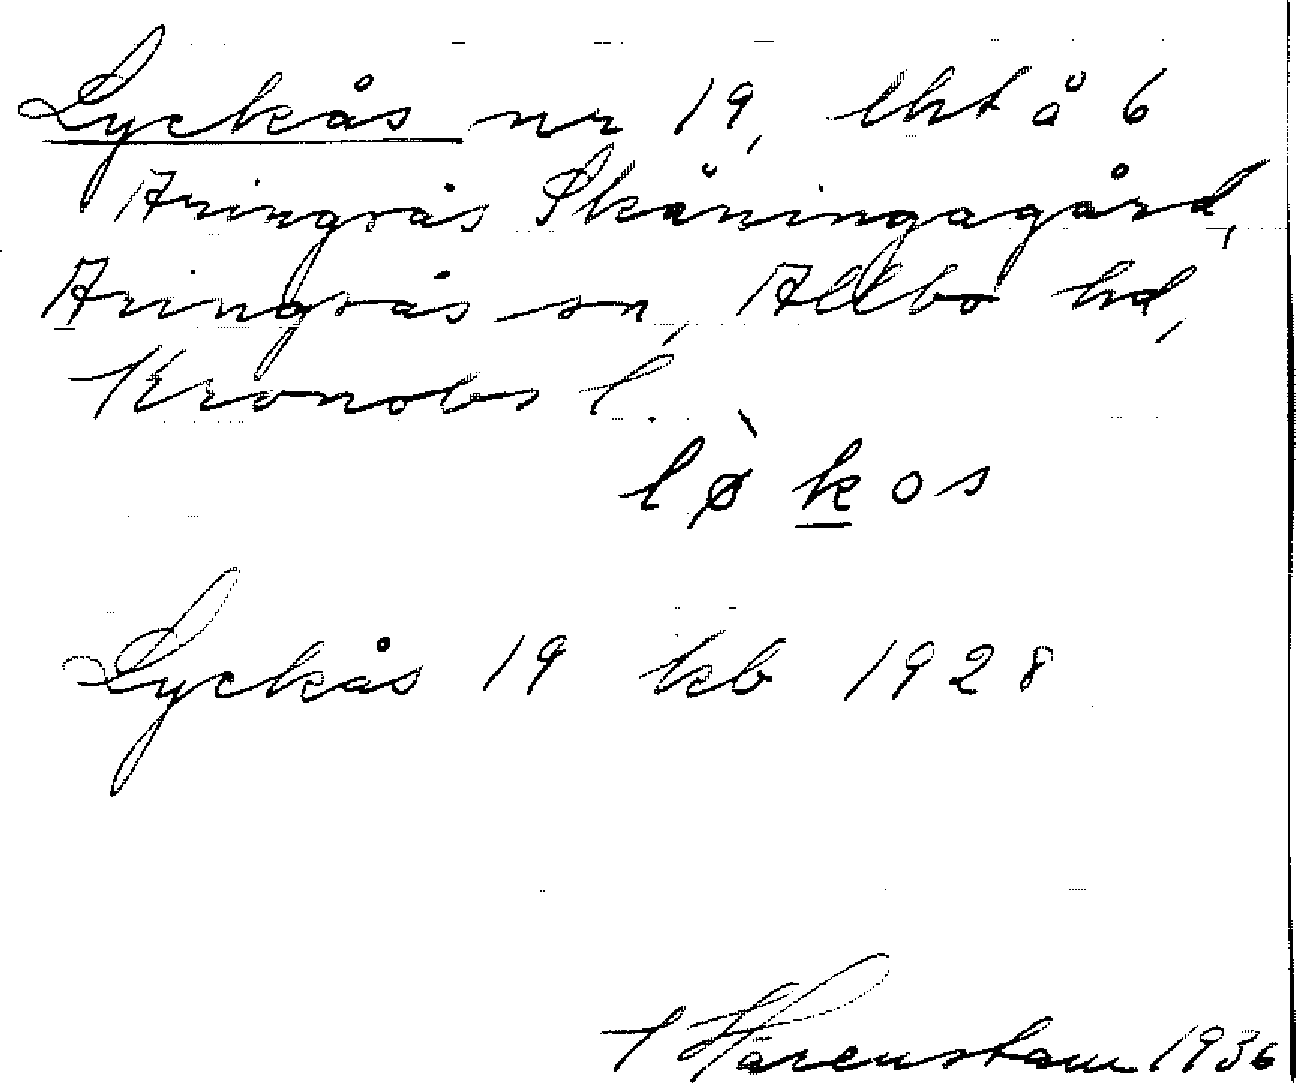 Lyckås nr 19, lht å 6
Aringsås Skåningagård,
Aringsås sn, Allbo hd,
Kronobs l.
lø̀kos
Lyckås 19 kb 1928
Harenstam 1936